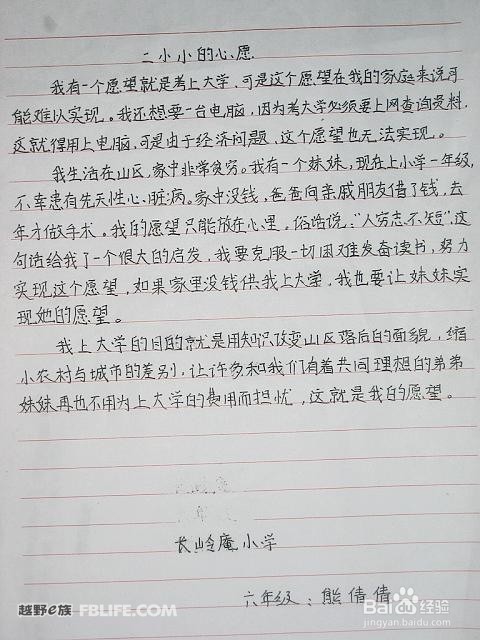 二小小的心愿
我有一个愿望就是考上大学，可是这个愿望在我的家庭来说可
能难以实现。我还想要一台电脑，因为考大学必须要上网查询资料，
这就得用上电脑，可是由于经济问题，这个愿望也无法实现。
我生活在山区，家中非常贫穷。我有一个妹妹，现在上小学一年级，
不幸患有先天性心脏病。家中没钱，爸爸向亲戚朋友借了钱，去
年才做手术。我的愿望只能放在心里。俗话说："人穷志不短"，这
句话给我了一个很大的启发，我要克服一切困难发奋读书，努力
实现这个愿望，如果家里没钱供我上大学，我也要让妹妹实
现她的愿望。
我上大学的目的就是用知识改变山区落后的面貌，缩
小农村与城市的差别，让许多和我们有着共同理想的弟弟
妹妹再也不用为上大学的费用而担忧，这就是我的愿望。
长岭庵小学
六年级：熊倩倩
越野e族 FBLIFE.COM
Baidu经验
jingyan.baidu.com